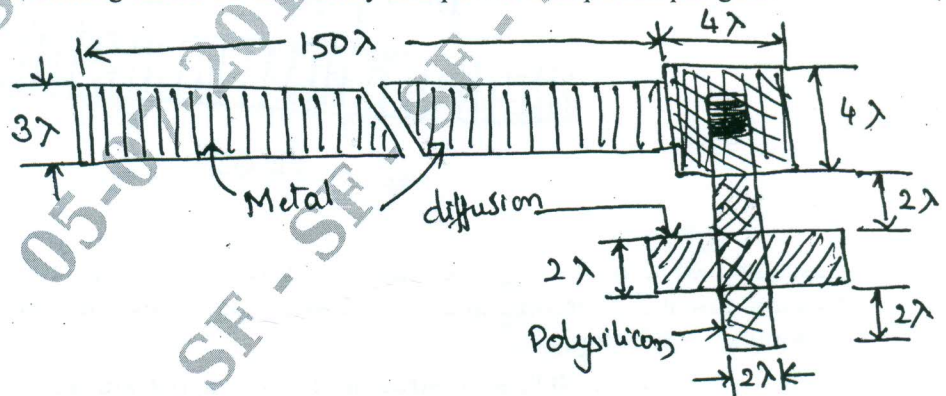 150λ
4λ
3λ
4λ
Metal
diffusion
2λ
2λ
Polysilicon
2λ
2λ
SF - SF - SF -